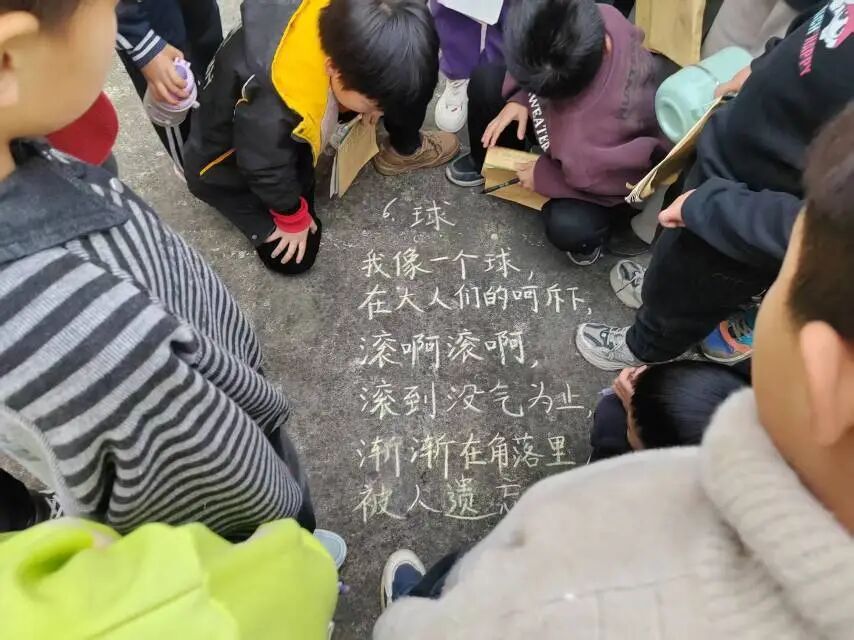 6. 球
我像一个球,
在大人们的呵斥下,
滚啊滚啊,
滚到没气为止,
渐渐在角落里
被人遗忘
SWEATER